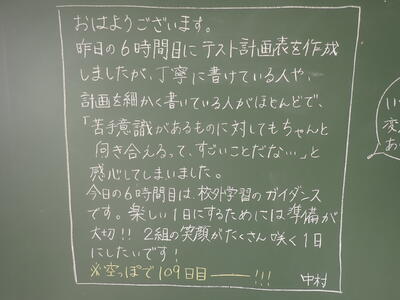 おはようございます。
昨日の6時間目にテスト計画表を作成
しましたが、丁寧に書けている人や、
計画を細かく書いている人がほとんどで、
「苦手意識があるものに対してもちゃんと
向き合えるって、すごいことだな…」と
感心してしまいました。
今日の6時間目は、校外学習のガイダンス
です。楽しい1日にするためには準備が
大切!! 2組の笑顔がたくさん咲く1日
にしたいです!
※空っぽで109日目――!!!
中村